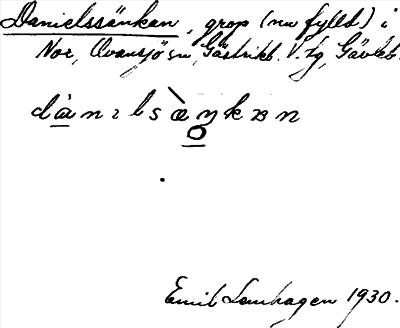 Danielssänkan, grop (nu fylld) i
Nor, Ovansjö sn, Gästrikl. V. tg, Gävleb.
Emil Lenhagen 1930.